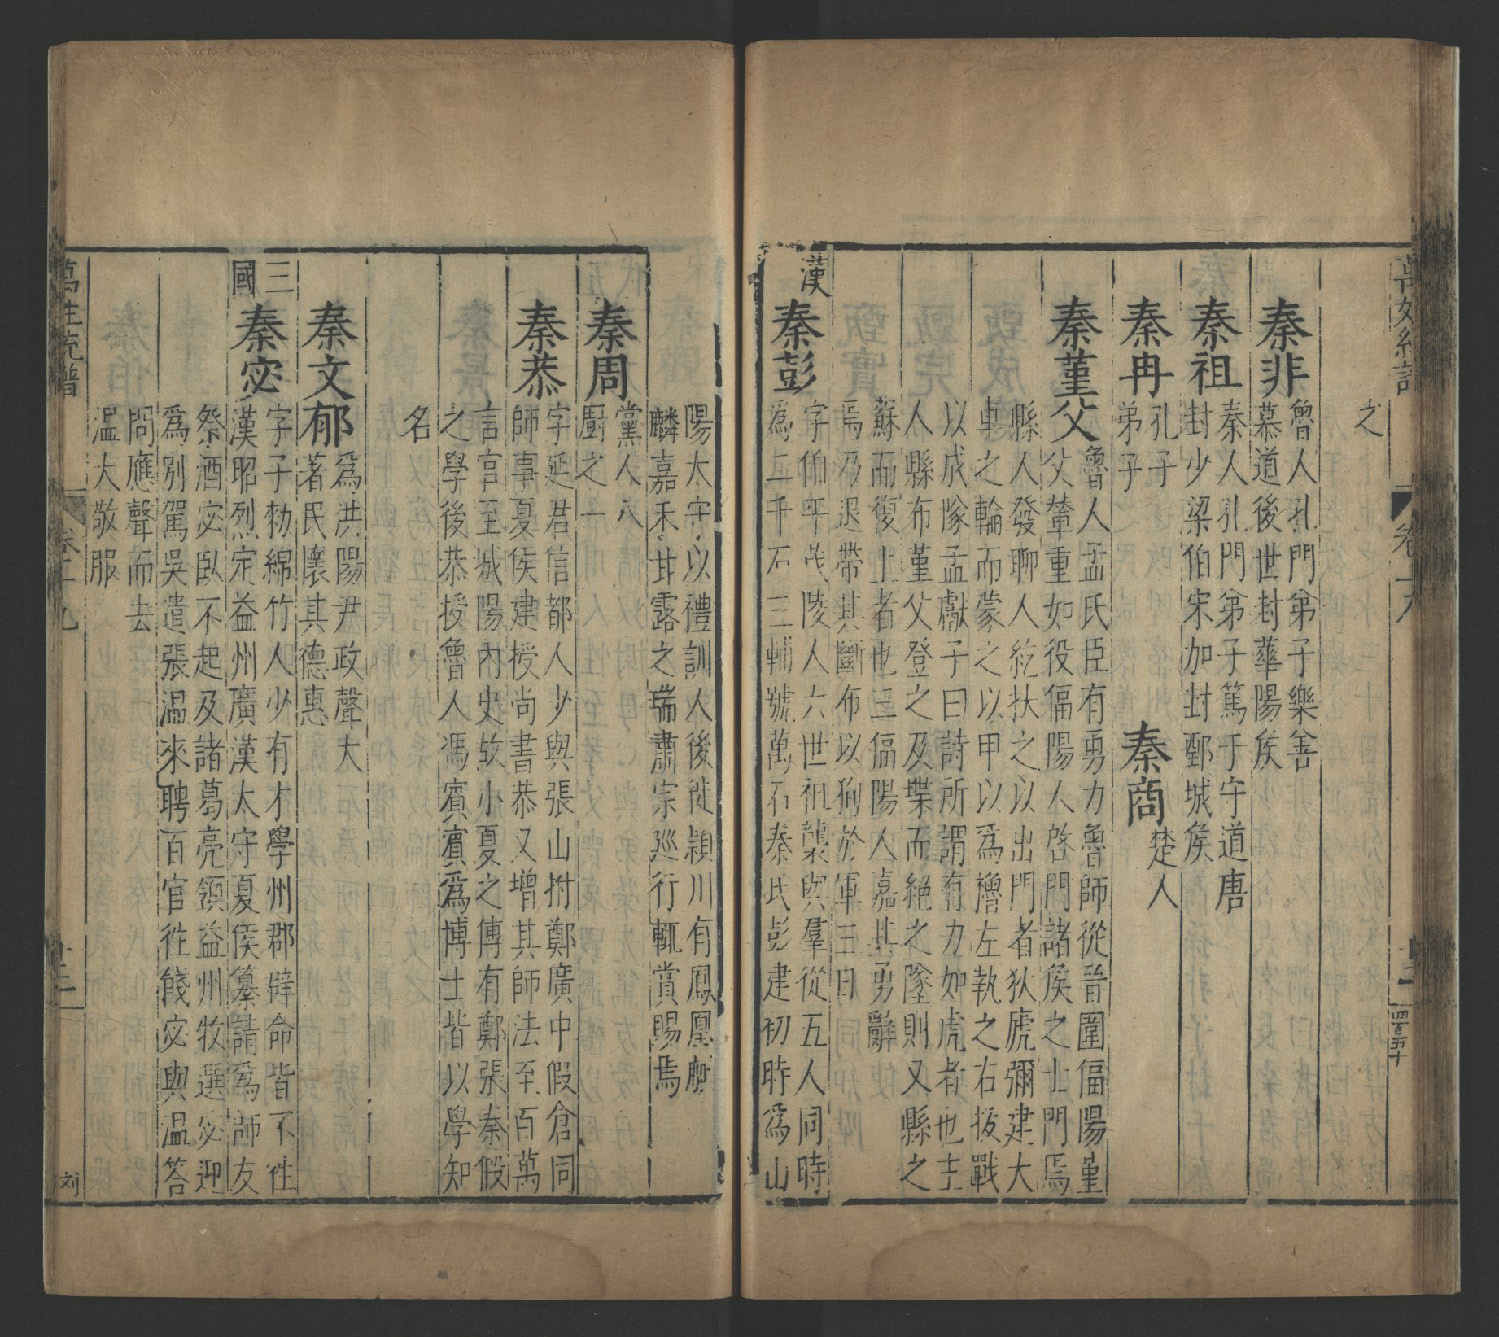 之
秦非
魯人孔門弟子樂善
慕道後世封華陽矦
秦祖
秦人孔門弟子篤于守道唐
封少梁伯宋加封鄄城矦
秦冉
孔子
弟子
秦商
楚人
秦菫父
魯人孟氏臣有勇力魯師從晉圍偪陽菫
父輦重如役偪陽人啓門諸矦之士門焉
縣人發聊人紇扶之以出門者狄虎彌建大
車之輪而蒙之以甲以爲櫓左執之右抜戰
以成隊孟獻子曰詩所謂有力如虎者也主
人縣布菫父登之及堞而絶之墜則又縣之
蘇而復上者也三偪陽人嘉其勇辭
焉乃退帶其斷布以狥於軍三日
漢
秦彭
字伯平茂陵人六世祖襲與羣從五人同時
爲二千石三輔號萬石秦氏彭建初時爲山
陽太守以禮訓人後徙頴川有鳳凰麒
麟嘉禾甘露之瑞肅宗巡行輒賞賜焉
秦周
黨人八
厨之一
秦恭
字延君信都人少與張山拊鄭廣中假倉同
師事夏侯建授尚書恭又增其師法至百萬
言官至城陽內史故小夏之傳有鄭張秦假
之學後恭授魯人馮賓賓爲博士皆以學知
名
秦文郁
爲洪陽尹政聲大
著民懷其德惠
三國
秦宓
字子勑綿竹人少有才學州郡辟命皆不徃
漢昭烈定益州廣漢太守夏侯纂請爲師友
祭酒宓臥不起及諸葛亮領益州牧選宓迎
爲別駕吳遣張温來聘百官徃餞宓與温答
問應聲而去
温大敬服
萬姓統譜
卷十九